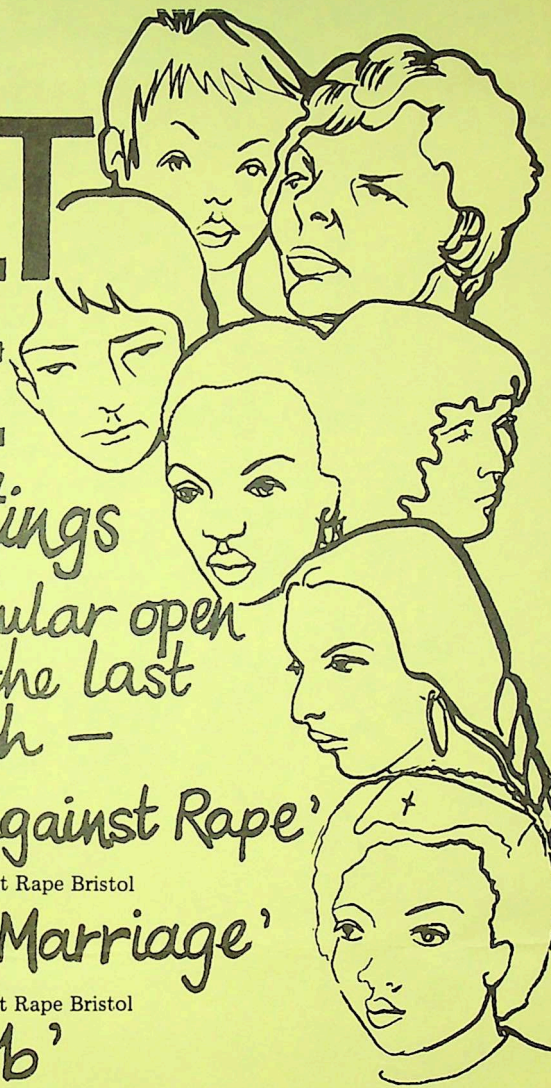 T
tings
ular open
he last
h —
gainst Rape'
t Rape Bristol
Marriage'
t Rape Bristol
b'